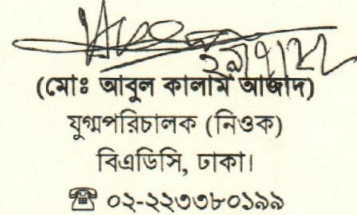 ২৯/৭/২২
(মোঃ আবুল কালাম আজাদ)
যুগ্মপরিচালক (নিওক)
বিএডিসি, ঢাকা।
☎ ০২-২২৩৩৮০১৯৯